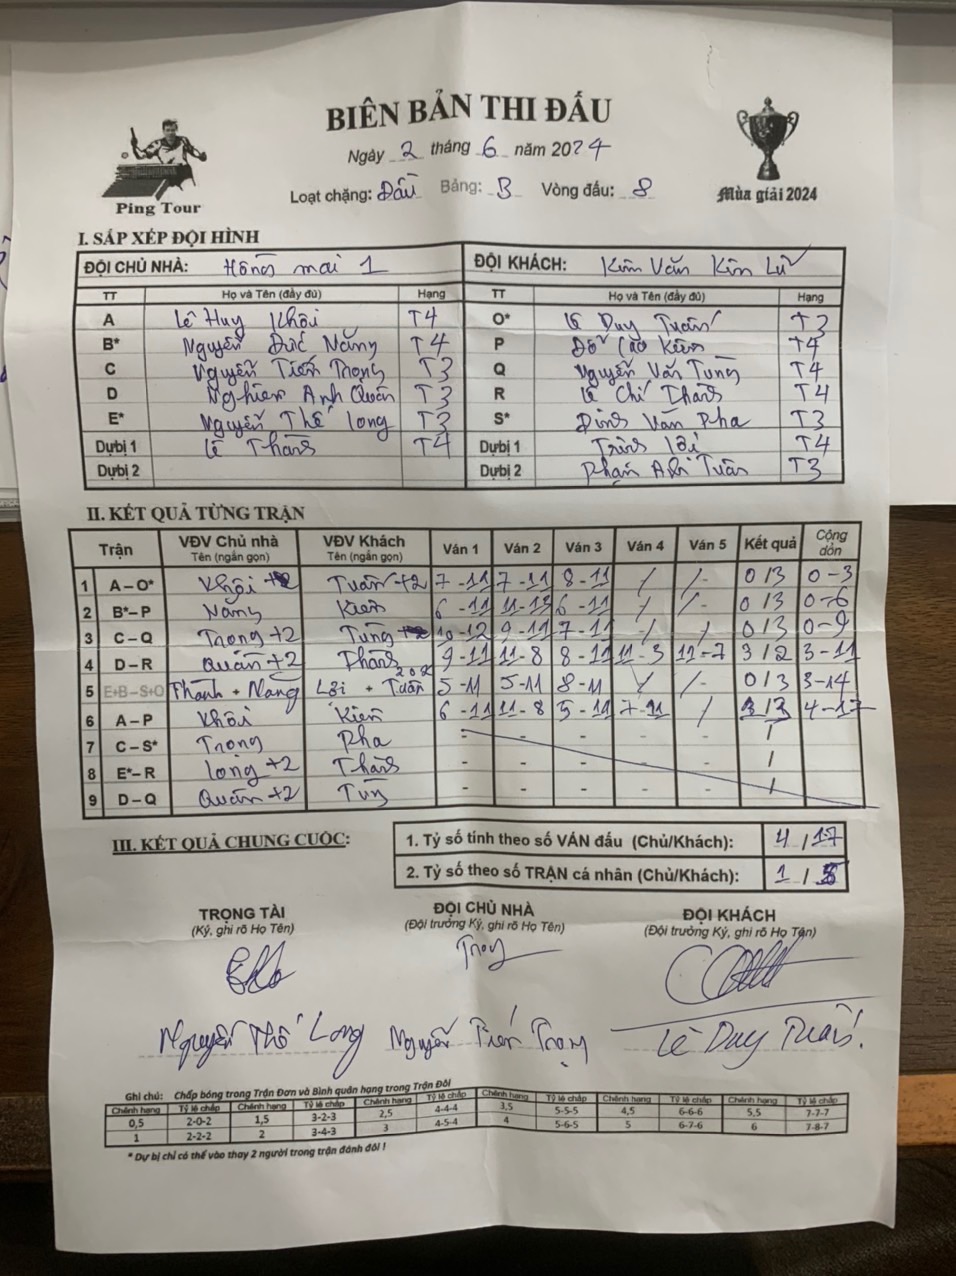 BIÊN BẢN THI ĐẤU
Ngày 2 tháng 6 năm 2024
Loạt chặng: Đầu Bảng: B Vòng đấu: 8
Ping Tour
Mùa giải 2024
I. SẮP XẾP ĐỘI HÌNH
ĐỘI CHỦ NHÀ: Hồng mai 1 ĐỘI KHÁCH: Kim Văn Kim Lũ
TT Họ và Tên (đầy đủ) Hạng TT Họ và Tên (đầy đủ) Hạng
A Lê Huy Khôi T4 O* Lê Duy Tuấn T3
B* Nguyễn Đức Năng T4 P Đỗ Cao Kiên T4
C Nguyễn Tiến Trọng T3 Q Nguyễn Văn Tùng T4
D Nghiêm Anh Quân T3 R Lê Chí Thắng T4
E* Nguyễn Thế Long T3 S* Đinh Văn Pha T3
Dự bị 1 Lê Thành T4 Dự bị 1 Trịnh Lợi T4
Dự bị 2 Dự bị 2 Phạm Anh Tuấn T3
II. KẾT QUẢ TỪNG TRẬN
Trận VĐV Chủ nhà VĐV Khách Ván 1 Ván 2 Ván 3 Ván 4 Ván 5 Kết quả Cộng dồn
Tên (ngắn gọn) Tên (ngắn gọn)
1 A – O* Khôi Tuấn +2 7-11 7-11 8-11 / /- 0/3 0-3
2 B* – P Năng Kiên 6-11 11-13 6-11 / /- 0/3 0-6
3 C – Q Trọng +2 Tùng 10-12 9-11 7-11 / / 0/3 0-9
4 D – R Quân +2 Thắng 9-11 11-8 8-11 11-3 12-7 3/2 3-11
5 E+B – S+O Thành + Năng Lợi + Tuấn 202 5-11 5-11 8-11 / /- 0/3 3-14
6 A – P Khôi Kiên 6-11 11-8 5-11 7-11 / /3 4-17
7 C – S* Trọng Pha - - - - - /
8 E* – R Long +2 Thắng - - - - - /
9 D – Q Quân +2 Tùng - - - - - /
III. KẾT QUẢ CHUNG CUỘC:
1. Tỷ số tính theo số VÁN đấu (Chủ/Khách): 4 / 17
2. Tỷ số theo số TRẬN cá nhân (Chủ/Khách): 1 / 5
TRỌNG TÀI ĐỘI CHỦ NHÀ ĐỘI KHÁCH
(Ký, ghi rõ Họ Tên) (Đội trưởng Ký, ghi rõ Họ Tên) (Đội trưởng Ký, ghi rõ Họ Tên)
Trọng
Nguyễn Thế Long Nguyễn Tiến Trọng Lê Duy Tuấn
Ghi chú: Chấp bóng trong Trận Đơn và Bình quân hạng trong Trận Đôi
Chênh hạng Tỷ lệ chấp Chênh hạng Tỷ lệ chấp Chênh hạng Tỷ lệ chấp Chênh hạng Tỷ lệ chấp Chênh hạng Tỷ lệ chấp Chênh hạng Tỷ lệ chấp
0,5 2-0-2 1,5 3-2-3 2,5 4-4-4 3,5 5-5-5 4,5 6-6-6 5,5 7-7-7
1 2-2-2 2 3-4-3 3 4-5-4 4 5-6-5 5 6-7-6 6 7-8-7
* Dự bị chỉ có thể vào thay 2 người trong trận đánh đôi !